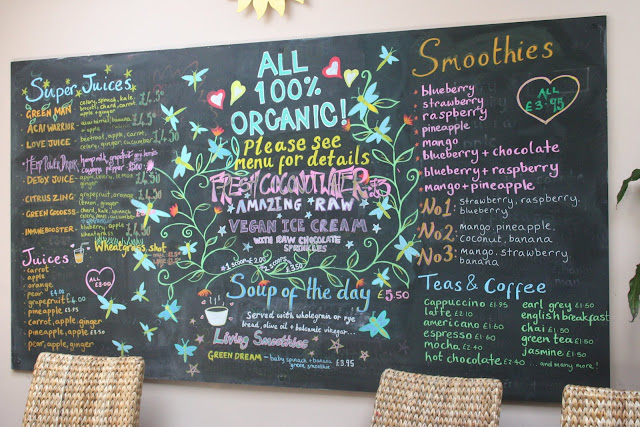 Super Juices
GREEN MAN celery, spinach, kale,
apple + ginger
ACAI WARRIOR
+ apple
LOVE JUICE beetroot, apple, carrot,
celery, ginger, cucumber
DETOX JUICE
ginger
CITRUS ZING grapefruit, orange
lemon, ginger
GREEN GODDESS
IMMUNE BOOSTER
Wheatgrass shot
Juices
carrot
apple
orange
pear
grapefruit
pineapple
carrot, apple, ginger
pineapple, apple
pear, apple, ginger
ALL
100%
ORGANIC!
Please see
menu for details
FRESH COCONUT WATER
AMAZING RAW
VEGAN ICE CREAM
WITH RAW CHOCOLATE
SPRINKLES
Soup of the day £5.50
Served with wholegrain or rye
bread, olive oil + balsamic vinegar...
Living Smoothies
GREEN DREAM - baby spinach + banana £3.95
green smoothie
Smoothies
blueberry
strawberry
raspberry
pineapple
mango
blueberry + chocolate
blueberry + raspberry
mango + pineapple
ALL
£3.95
No1: strawberry, raspberry,
blueberry
No2: mango, pineapple,
coconut, banana
No3: mango, strawberry
banana
Teas & Coffee
cappuccino £1.95
latte £2.10
americano £1.60
espresso £1.60
mocha £2.40
hot chocolate £2.40
earl grey £1.50
english breakfast
chai £1.50
green tea £1.50
jasmine £1.50
... and many more!